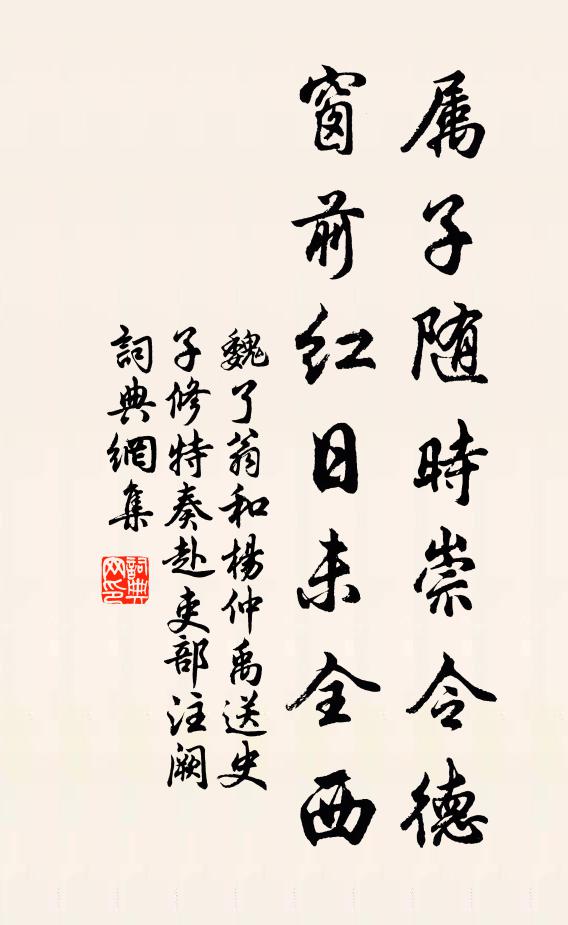 属子随時崇令德
窗前红日未全西
魏了翁和楊仲禹送史
子修特奏赴吏部注阙
詞典網集
詞典
网印